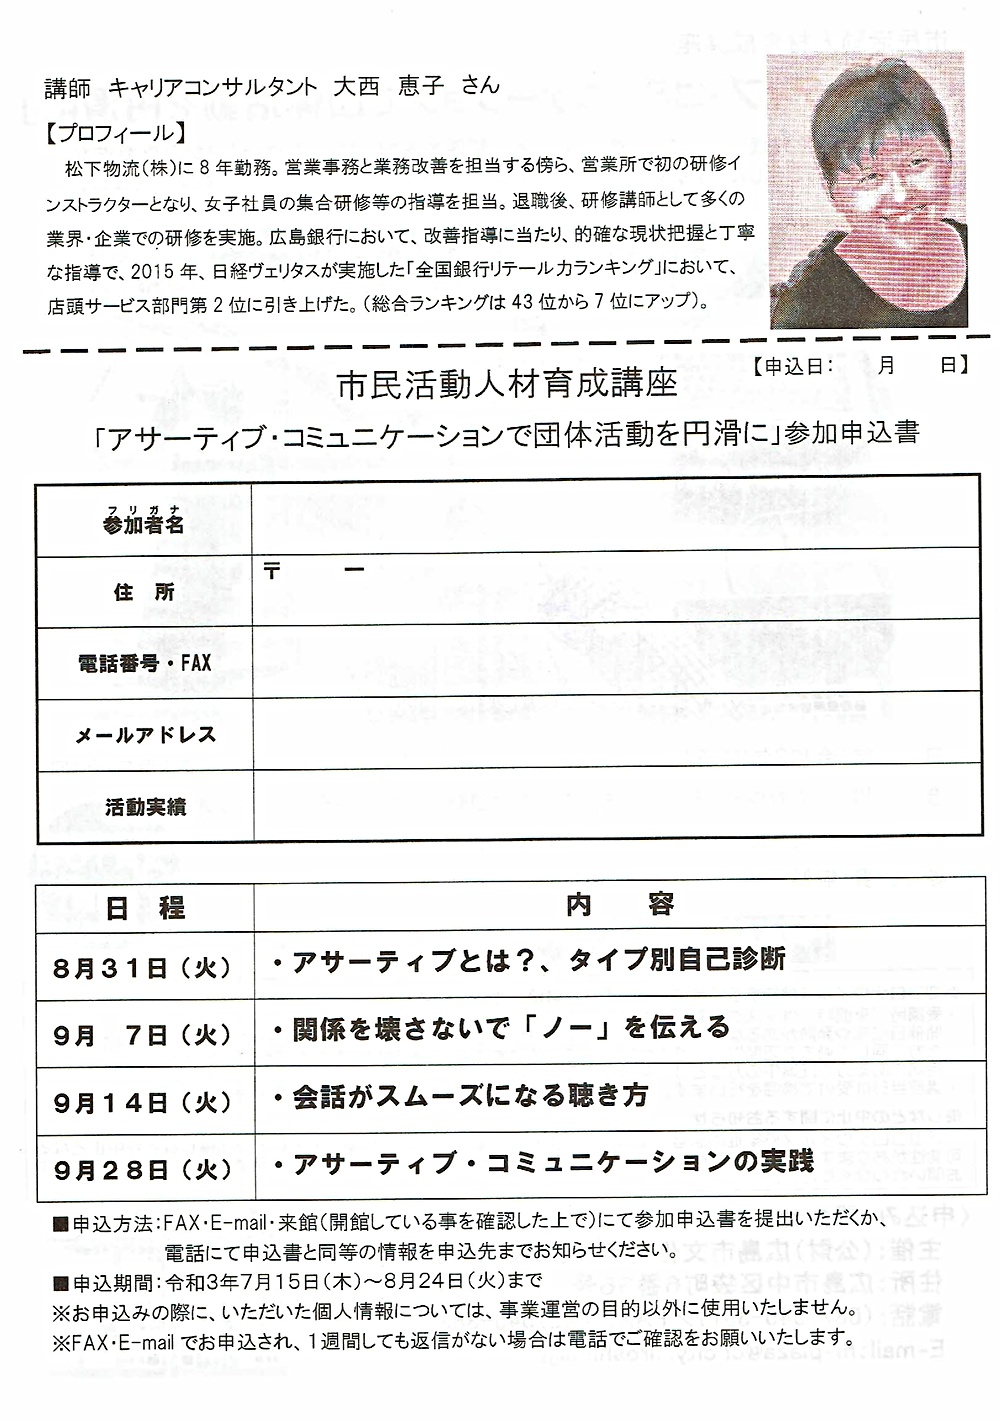 講師　キャリアコンサルタント　大西　恵子　さん
【プロフィール】
松下物流(株)に8年勤務。営業事務と業務改善を担当する傍ら、営業所で初の研修イ
ンストラクターとなり、女子社員の集合研修等の指導を担当。退職後、研修講師として多くの
業界・企業での研修を実施。広島銀行において、改善指導に当たり、的確な現状把握と丁寧
な指導で、2015年、日経ヴェリタスが実施した「全国銀行リテール力ランキング」において、
店頭サービス部門第2位に引き上げた。(総合ランキングは43位から7位にアップ)。
【申込日:　　月　　日】
市民活動人材育成講座
「アサーティブ・コミュニケーションで団体活動を円滑に」参加申込書
フリガナ
参加者名
住　所
〒　　　ー
電話番号・FAX
メールアドレス
活動実績
日　程　　内　　容
8月31日(火)　・アサーティブとは?、タイプ別自己診断
9月　7日(火)　・関係を壊さないで「ノー」を伝える
9月14日(火)　・会話がスムーズになる聴き方
9月28日(火)　・アサーティブ・コミュニケーションの実践
■申込方法:FAX・E-mail・来館(開館している事を確認した上で)にて参加申込書を提出いただくか、
電話にて申込書と同等の情報を申込先までお知らせください。
■申込期間:令和3年7月15日(木)～8月24日(火)まで
※お申込みの際に、いただいた個人情報については、事業運営の目的以外に使用いたしません。
※FAX・E-mailでお申込され、1週間しても返信がない場合は電話でご確認をお願いいたします。